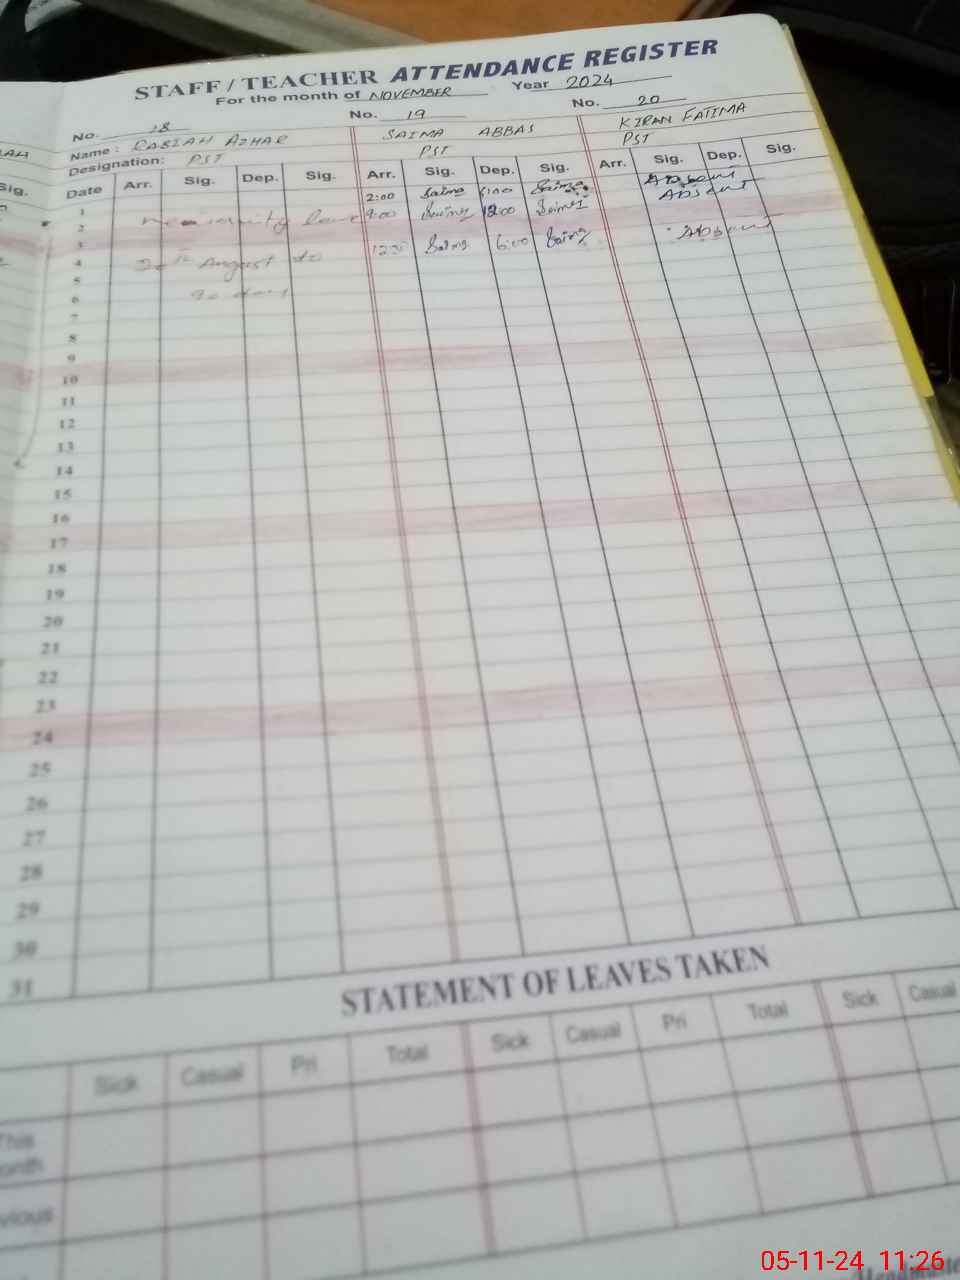 STAFF / TEACHER ATTENDANCE REGISTER
For the month of NOVEMBER Year 2024
No. 18 No. 19 No. 20
Name : RABIAH AZHAR SAIMA ABBAS KIRAN FATIMA
Designation: PST PST PST
Date Arr. Sig. Dep. Sig. Arr. Sig. Dep. Sig. Arr. Sig. Dep. Sig.
1 2:00 Saima 6:00 Saima Absent
2 9:00 Saima 12:00 Saima Absent
3
4 20th August to 12:30 Saima 6:00 Saima Absent
5
6 90 days
7
8
9
10
11
12
13
14
15
16
17
18
19
20
21
22
23
24
25
26
27
28
29
30
31
STATEMENT OF LEAVES TAKEN
Sick Casual Pri Total Sick Casual Pri Total Sick Casual
05-11-24 11:26